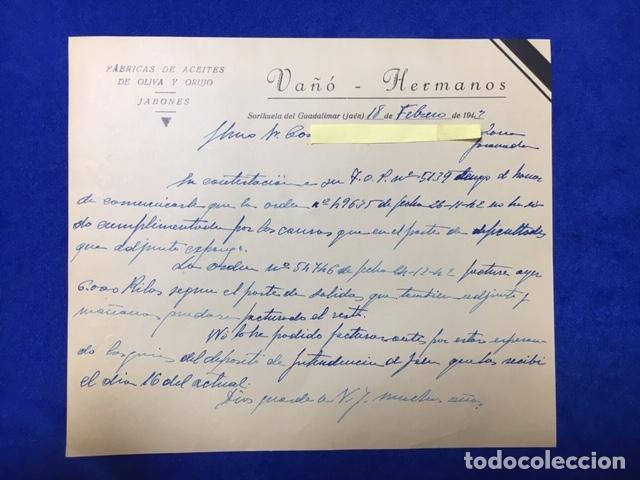 FÁBRICAS DE ACEITES
DE OLIVA Y ORUJO
JABONES
Vañó - Hermanos
Sorihuela del Guadalimar (Jaén) 18 de Febrero de 1943
Ilmo Sr. Co
Granada
En contestación a su nº 5139 tengo el honor
de comunicarle que la orden nº 49635 de fecha 26-11-42 no ha si-
do cumplimentada por las causas que en el parte de dificultades
que adjunto expongo.
La orden nº 54746 de fecha 24-12-42 facturé ayer
6.000 Kilos segun el parte de salidas que tambien adjunto y
mañana quedara facturado el resto.
No lo he podido facturar antes por estar esperan-
do las guias del deposito de Intendencia de Jaen que las recibi
el dia 16 del actual.
Dios guarde a V. I. muchos años
todocoleccion
todocoleccion.net